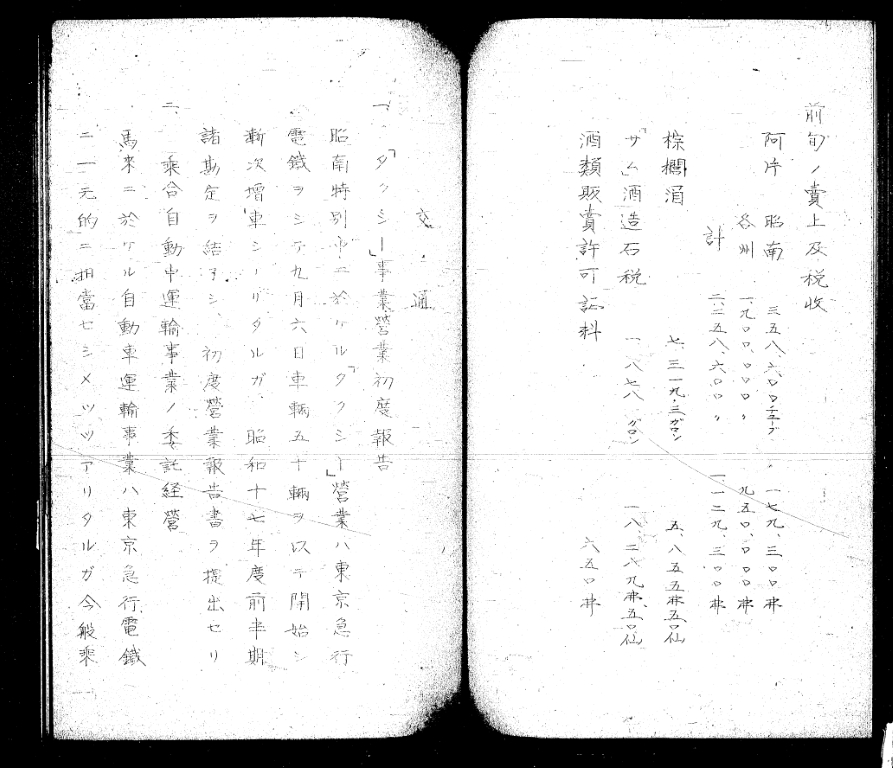 前旬ノ賣上及税收
阿片 昭南 三五八、六〇〇チューブ 一七九、三〇〇弗
各州 一、九〇〇、〇〇〇〃 九五〇、〇〇〇弗
計 二、二五八、六〇〇〃 一一二九、三〇〇弗
棕櫚酒 七、三一九・三ガロン 五、八五五弗五〇仙
「サム」酒造石税 一、八七八、ガロン 一八、二八九弗五〇仙
酒類販賣許可証料 六五〇弗
交通
一、「タクシー」事業營業初度報告
昭南特別市ニ於ケル「タクシー」營業ハ東京急行
電鐵ヲシテ九月六日車輛五十輛ヲ以テ開始シ
漸次増車シ々リタルガ、昭和十七年度前半期
諸勘定ヲ結了シ、初度營業報告書ヲ提出セリ
二、乘合自動車運輸事業ノ委託経營
馬來ニ於ケル自動車運輸事業ハ東京急行電鐵
ニ一元的ニ担當セシメツツアリタルガ今般乘